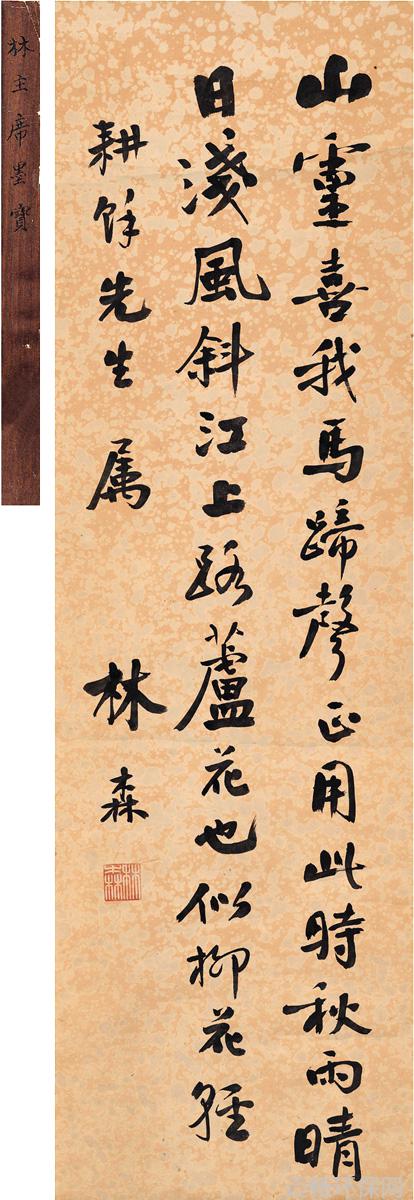 山靈喜我馬蹄聲正用此時秋雨晴
日淺風斜江上路蘆花也似柳花輕
耕餘先生 属
林森
林森
林主席墨寶